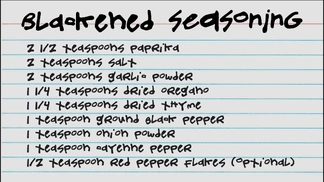 Blackened Seasoning
2 1/2 teaspoons paprika
2 teaspoons salt
2 teaspoons garlic powder
1 1/4 teaspoons dried oregano
1 1/4 teaspoons dried thyme
1 teaspoon ground black pepper
1 teaspoon onion powder
1 teaspoon cayenne pepper
1/2 teaspoon red pepper flakes (optional)